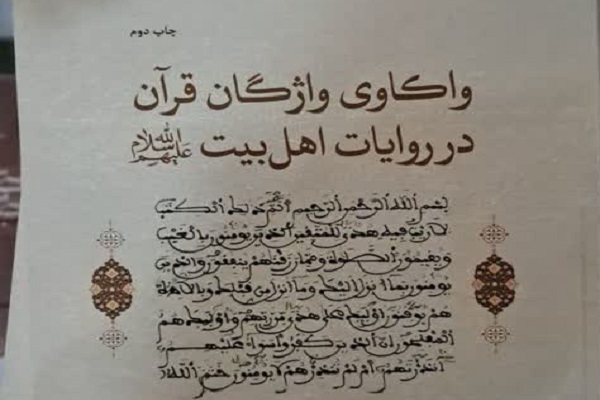 چاپ دوم
واکاوی واژگان قرآن
در روایات اهل‌بیت علیهم‌السلام
بسم الله الرحمن الرحيم الم ذلك الكتب
لا ريب فيه هدى للمتقين الذين يومنون بالغيب
ويقيمون الصلوة ومما رزقنهم ينفقون والذين
يومنون بما انزل اليك وما انزل من قبلك وبالاخرة
هم يوقنون اوليك على هدى من ربهم واوليك هم
المفلحون ان الذين كفروا سواء عليهم
ءانذرتهم ام لم تنذرهم لا يومنون ختم الله